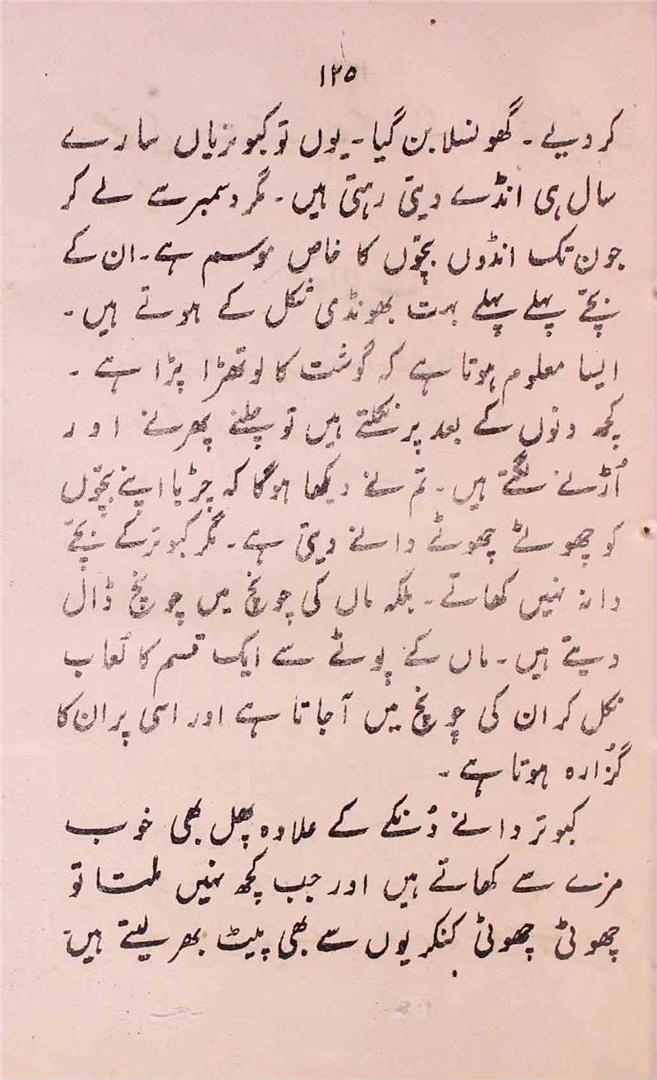 ۱۲۵
کر دیے۔ گھونسلا بن گیا۔ یوں تو کبوتریاں سارے
سال ہی انڈے دیتی رہتی ہیں۔ مگر دسمبر سے لے کر
جون تک انڈوں بچّوں کا خاص موسم ہے۔ ان کے
بچّے پہلے پہلے بہت بھونڈی شکل کے ہوتے ہیں۔
ایسا معلوم ہوتا ہے کہ گوشت کا لوتھڑا پڑا ہے۔
کچھ دنوں کے بعد پر نکلتے ہیں تو چلنے پھرنے اور
اُڑنے لگتے ہیں۔ تم نے دیکھا ہوگا کہ چڑیا اپنے بچّوں
کو چھوٹے چھوٹے دانے دیتی ہے۔ مگر کبوتر کے بچّے
دانہ نہیں کھاتے۔ بلکہ ماں کی چونچ میں چونچ ڈال
دیتے ہیں۔ ماں کے پوٹے سے ایک قسم کا لُعاب
نکل کر ان کی چونچ میں آجاتا ہے اور اسی پر ان کا
گزُارہ ہوتا ہے۔
کبوتر دانے دُنکے کے علاوہ پھل بھی خوب
مزے سے کھاتے ہیں اور جب کچھ نہیں ملتا تو
چھوٹی چھوٹی کنکریوں سے بھی پیٹ بھر لیتے ہیں